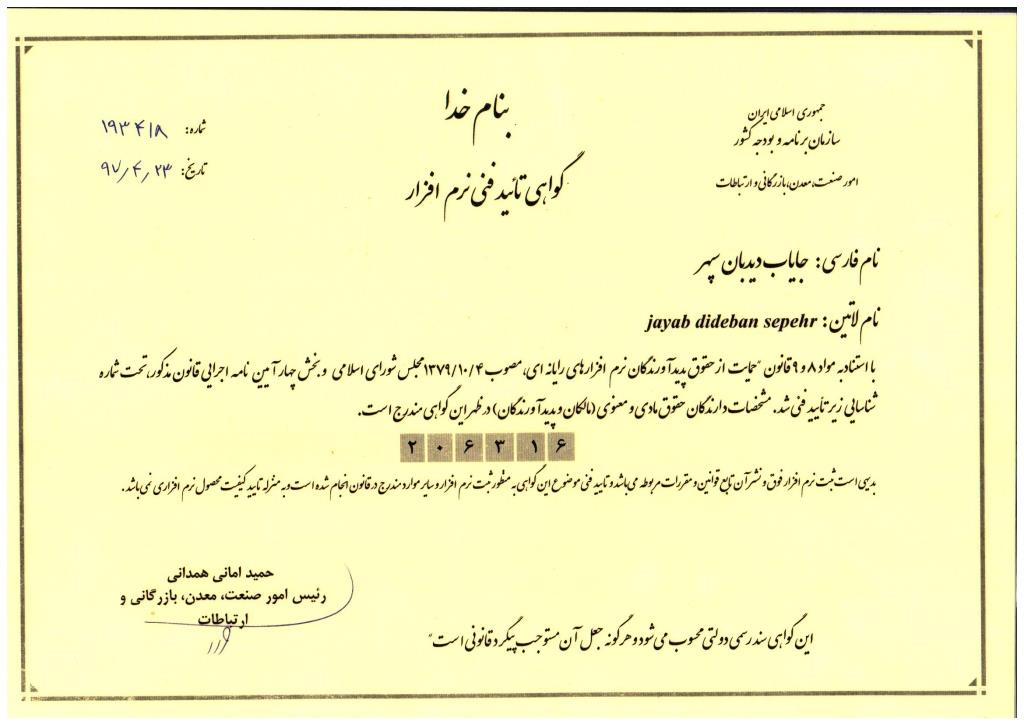 بنام خدا
جمهوری اسلامی ایران
سازمان برنامه و بودجه کشور
امور صنعت، معدن، بازرگانی و ارتباطات
شماره: ۱۹۳۴۱۸
تاریخ: ۹۷/۴/۲۳
گواهی تائید فنی نرم افزار
نام فارسی: جایاب دیدبان سپهر
نام لاتین: jayab dideban sepehr
با استناد به مواد ۸ و ۹ قانون "حمایت از حقوق پدیدآورندگان نرم افزارهای رایانه ای، مصوب ۱۳۷۹/۱۰/۴ مجلس شورای اسلامی و بخش چهار آیین نامه اجرایی قانون مذکور، تحت شماره
شناسایی زیر تأیید فنی شد. مشخصات دارندگان حقوق مادی و معنوی (مالکان و پدیدآورندگان) در ظهر این گواهی مندرج است.
۲۰۶۳۱۶
بدیهی است ثبت نرم افزار فوق و نشر آن تابع قوانین و مقررات مربوطه می باشد و تایید فنی موضوع این گواهی به منظور ثبت نرم افزار و سایر موارد مندرج در قانون انجام شده است و به منزله تایید کیفیت محصول نرم افزاری نمی باشد.
حمید امانی همدانی
رئیس امور صنعت، معدن، بازرگانی و
ارتباطات
این گواهی سند رسمی دولتی محسوب می شود و هرگونه جعل آن مستوجب پیگرد قانونی است"